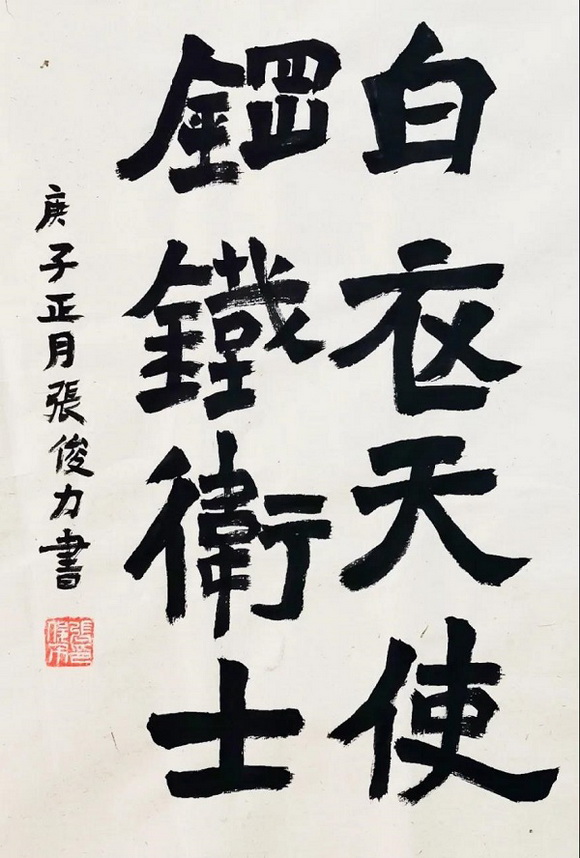 白衣天使
鋼鐵衛士
庚子正月張俊力書